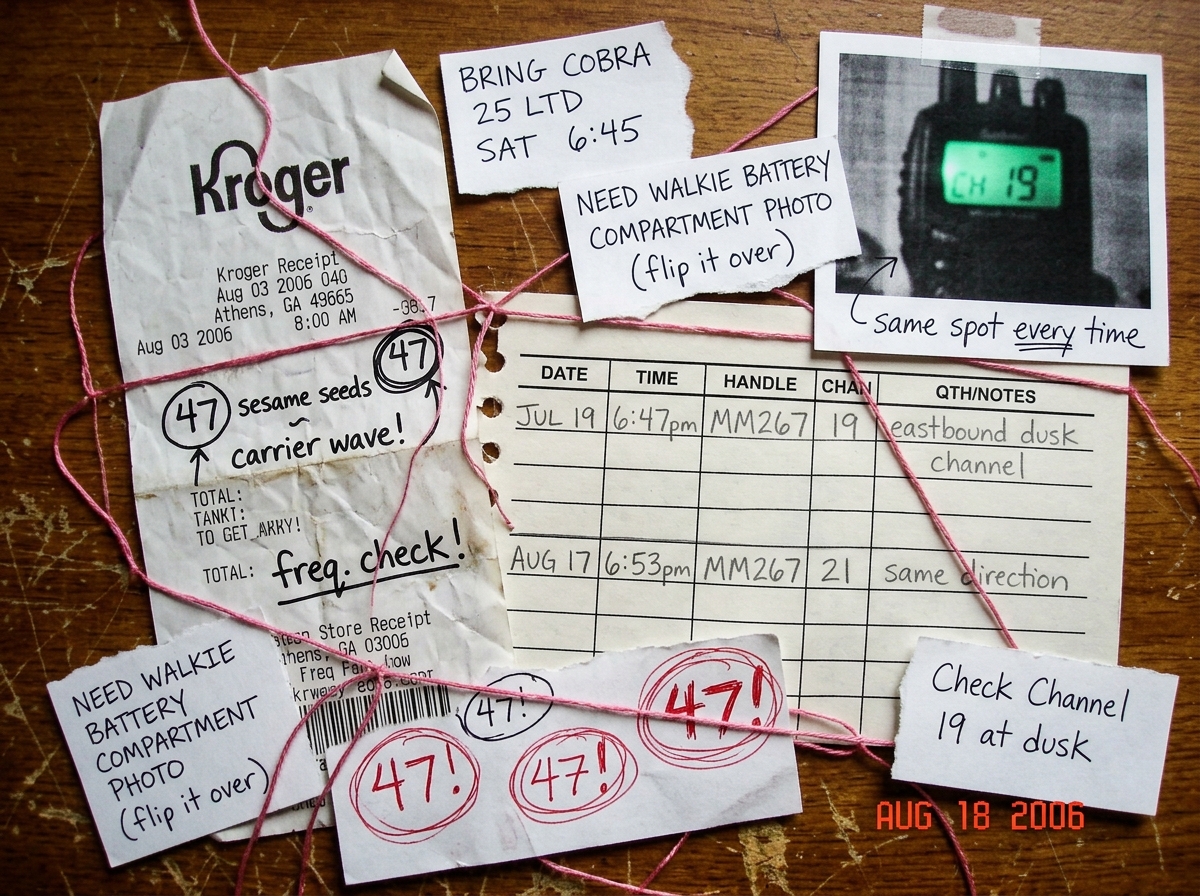 BRING COBRA
25 LTD
SAT 6:45
NEED WALKIE BATTERY
COMPARTMENT PHOTO
(flip it over)
CH 19
same spot every time
Kroger
Kroger Receipt
Aug 03 2006 040
Athens, GA 49665
Aug 03 2006 8:00 AM
47 sesame seeds 47
~
carrier wave!
TOTAL:
TANKT:
TO GET ARKY!
TOTAL: freq. check!
Store Receipt
thens, GA 03006
Freq
DATE TIME HANDLE CHAN QTH/NOTES
JUL 19 6:47pm MM267 19 eastbound dusk
channel
AUG 17 6:53pm MM267 21 same direction
NEED WALKIE
BATTERY
COMPARTMENT
PHOTO
(flip it over)
47!
47!
47!
47!
Check Channel
19 at dusk
AUG 18 2006